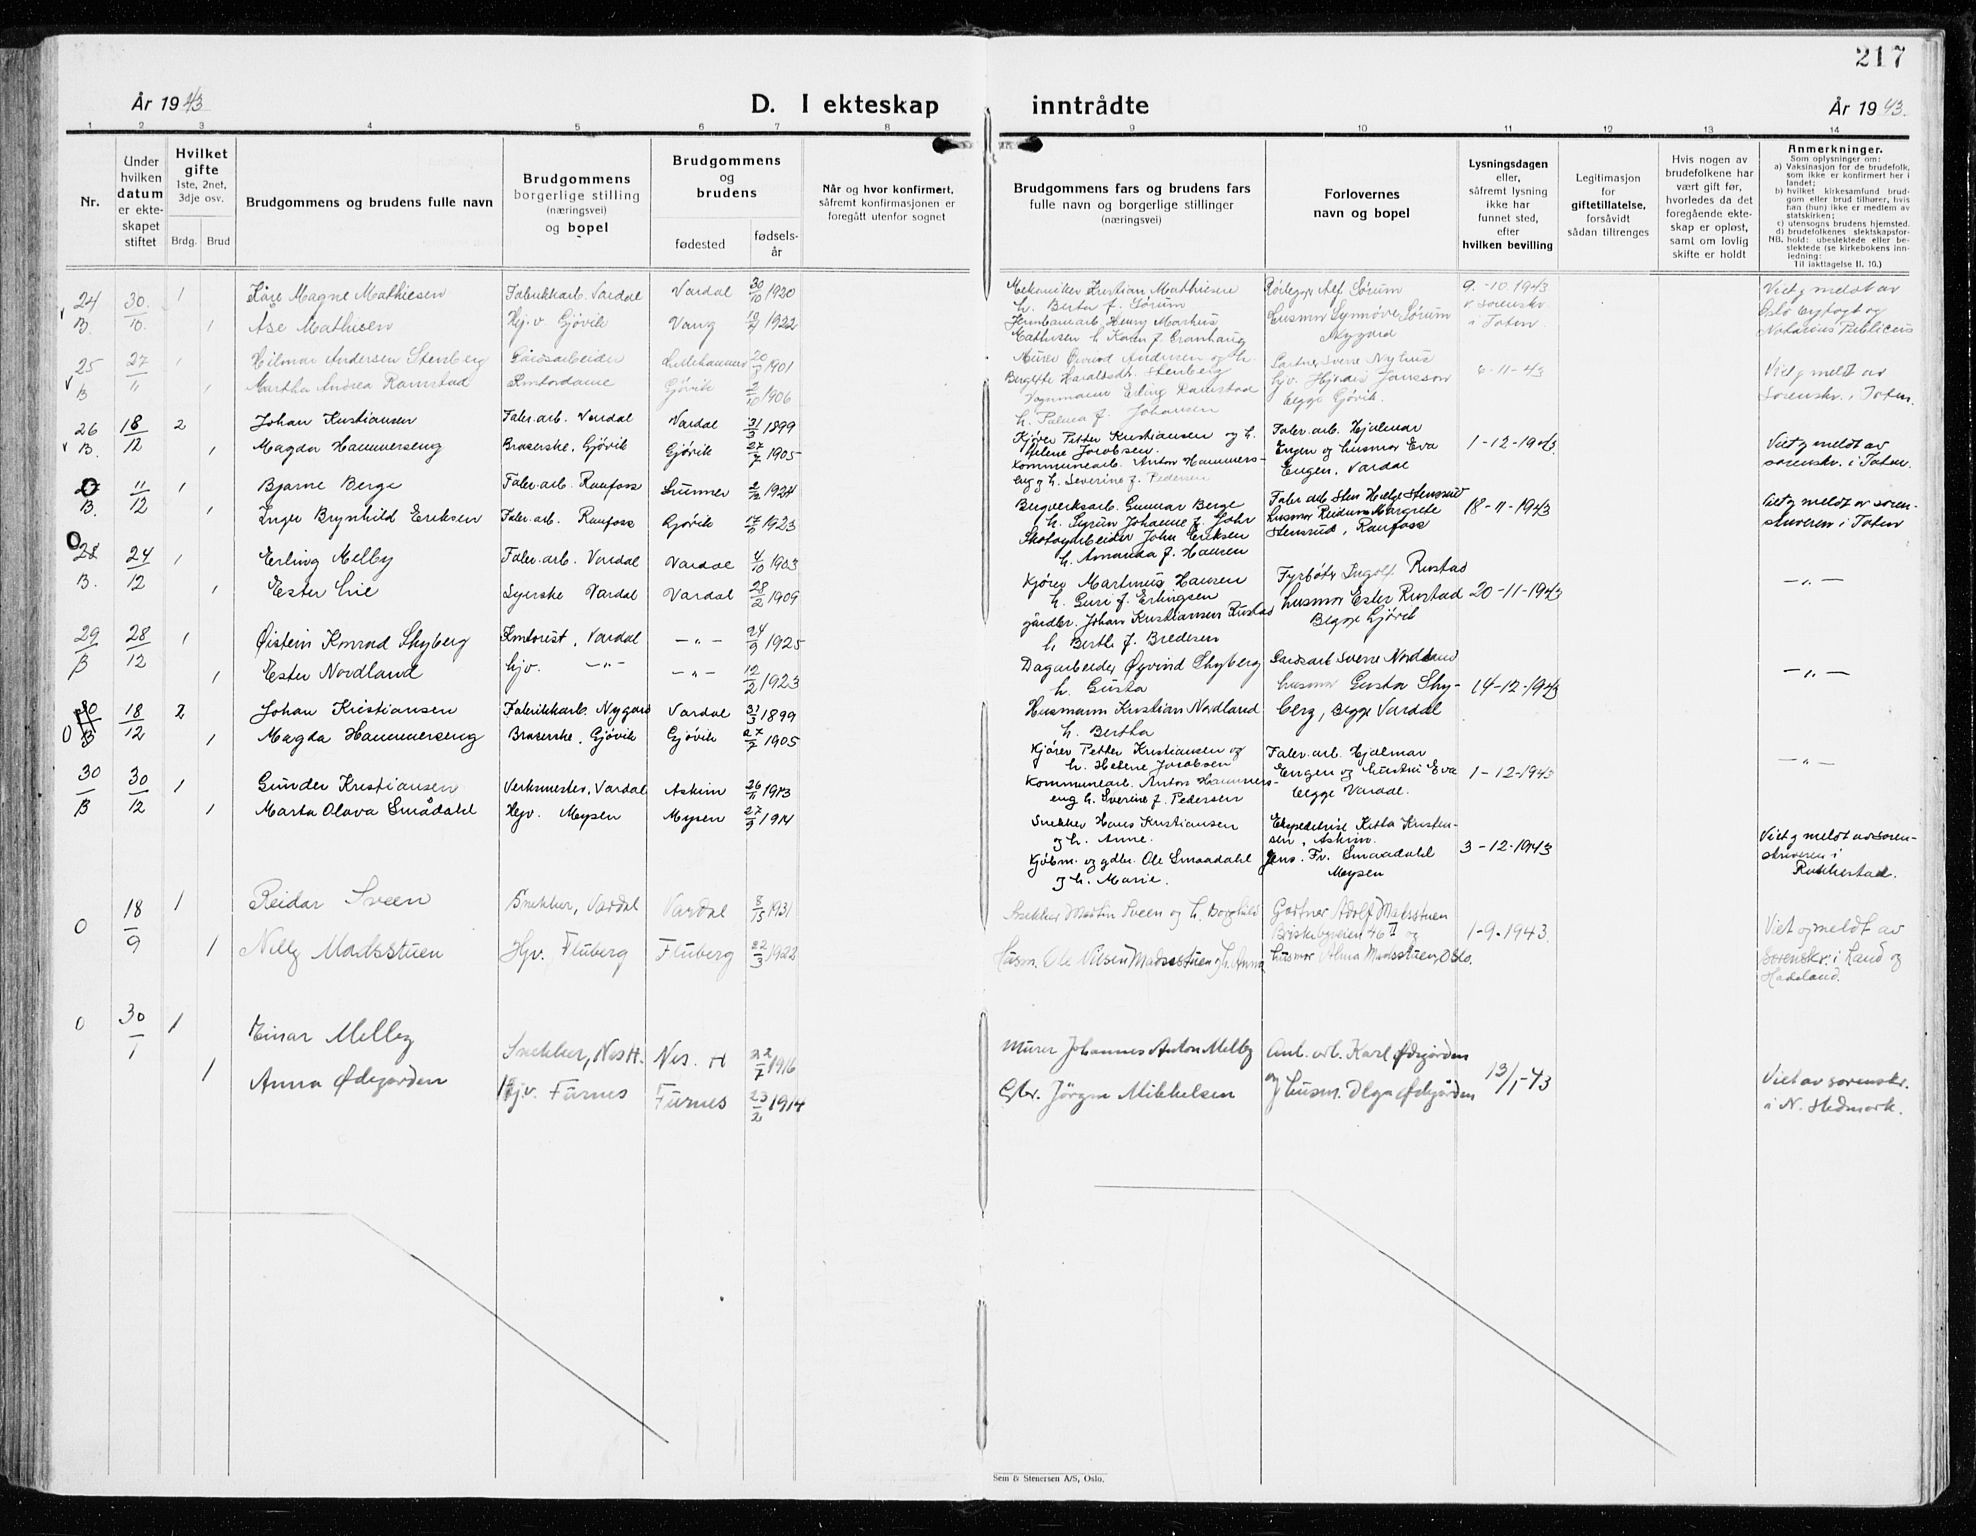 217
År 1943
D. I ekteskap inntrådte
År 1943.
1 2 3 4 5 6 7 8 9 10 11 12 13 14
Nr.
Under hvilken datum er ekteskapet stiftet
Hvilket gifte
1ste, 2net, 3dje osv.
Brdg. Brud
Brudgommens og brudens fulle navn
Brudgommens borgerlige stilling (næringsvei) og bopel
Brudgommens og brudens
fødested
fødsels-år
Når og hvor konfirmert, såfremt konfirmasjonen er foregått utenfor sognet
Brudgommens fars og brudens fars fulle navn og borgerlige stillinger (næringsvei)
Forlovernes navn og bopel
Lysningsdagen eller, såfremt lysning ikke har funnet sted, efter hvilken bevilling
Legitimasjon for giftetillatelse, forsåvidt sådan tiltrenges
Hvis nogen av brudefolkene har vært gift før, hvorledes da det foregående ekteskap er opløst, samt om lovlig skifte er holdt
Anmerkninger.
Som oplysninger om:
a) Vaksinasjon for de brudefolk, som ikke er konfirmert her i landet;
b) hvilket kirkesamfund brudgom eller brud tilhører, hvis han (hun) ikke er medlem av statskirken;
c) utensogns brudens hjemsted.
d) brudefolkenes slektskapsforhold: ubeslektede eller beslektede (se kirkebokens innledning:
NB. Til iakttagelse II. 10.)
24 30/10. 1 Kåre Magne Mathiesen Fabrikkarb. Vardal Vardal 30/10 1920
B. 1 Åse Mathisen Hj.v. Gjøvik Vang 1922
Mekaniker Kristian Mathiesen
h. Berta f. Sørum
Jernbanearb. Henry Markus
Mathisen h. Karen f. Tranhaug
Rørlegger Alf Sørum
Husmor Synnøve Sørum
Nygard
9.-10.1943
v sorenskr.
i Toten
Viet g meldt av
Oslo byfogt og
Notarius Publicus
25 27/11 1 Hilmar Andersen Stenberg Gårdsarbeider Lillehammer 1901
B 1 Martha Andrea Ramstad Kontordame Gjøvik 2/10 1906
Murer Øivind Andersen og h.
Bergette Haraldsdtr. Stenberg
Vognmann Erling Ramstad
h. Palma f. Johansen
Gartner Sverre Nyhus
Hjv. Hjørdis Jansson
begge Gjøvik.
6-11-43
Viet g meldt av
Sorenskr. i Toten.
26 18/12 2 Johan Kristiansen Fabr.arb. Vardal Vardal 31/3 1899
B. 1 Magda Hammerseng Braserske, Gjøvik Gjøvik 27/7 1905
Kjører Petter Kristiansen og h.
Helene Jacobsen.
Kommunearb. Anton Hammers-
eng g h. Severine f. Pedersen
Fabr. arb. Hjalmar
Engen og husmor Eva
Engen, Vardal
1-12-1943.
Viet g meldt av
sorenskr. i Toten.
27 11/12 1 Bjarne Berge Fabr.arb. Raufoss Lunner 2/2 1924
B. 1 Inger Brynhild Eriksen Fabr.arb. Raufoss Gjøvik 17/11 1923
Bergverksarb. Gunnar Berge
h. Syrun Johanne f. Gohr
Skotøyarbeider John Eriksen
h. Amanda f. Hansen
Fabr arb Sten Helge Stensrud
husmor Reidun Margrete
Stensrud, Raufoss
18-11-1943
Viet g meldt av soren-
skriveren i Toten
28 24/12 1 Erling Melby Fabr.arb. Vardal Vardal 4/10 1903
B. 1 Ester Lie Syerske Vardal Vardal 28/2 1909
Kjører Martinus Hansen
h. Guri f. Erlingsen
gårdbr. Johan Kristiansen Rustad
h. Berthe f. Bredesen
Fyrbøter Ingolf Rustad
husmor Ester Rustad
Begge Gjøvik
20-11-1943
—„—
29 28/12 1 Øistein Konrad Skyberg Kontorist, Vardal —„— 24/9 1925
B 1 Ester Nordland hjv. —„— —„— 12/2 1923
Dagarbeider Øyvind Skyberg
h. Gusta
Husmann Kristian Nordland
h. Bertha
Gårdsarb Sverre Nordland
husmor Gusta Sky-
berg, begge Vardal
14-12-1943
—„—
30 18/12 2 Johan Kristiansen Fabrikkarb. Nygard Vardal 31/3 1899
0 B 1 Magda Hammerseng Braserske, Gjøvik Gjøvik 27/7 1905
Kjører Petter Kristiansen og
h. Helene Jacobsen
Kommunearb. Anton Hammers-
eng h. Severine f. Pedersen
Fabr. arb. Hjalmar
Engen og hustru Eva
begge Vardal.
1-12-1943
—„—
30 30/12 1 Gunder Kristiansen Verksmester, Vardal Askim 26/11 1913
B 1 Marta Olava Smådahl Hjv. Mysen Mysen 27/9 1914
Snekker Hans Kristiansen
og h. Anne.
Kjøbm. og gdbr. Ole Smaadahl
g h. Marie.
Ekspeditrise Ketta Kristen-
sen, Askim.
Jens. Fr. Smaadahl
Mysen
3-12-1943
Viet g meldt av soren-
skriveren i
Rakkestad.
0 18/9 1 Reidar Sveen Snekker, Vardal Vardal 8/15 1931
1 Nelly Madsstuen Hjv. Fluberg Fluberg 22/3 1922
Snekker Martin Sveen og h. Borghild
Husm. Ole Nilsen Madsstuen g h. Anna
Gartner Adolf Madsstuen
Briskebyveien 46 II og
husmor Alma Madsstuen, Oslo.
1-9-1943.
Viet og meldt av
Sorenskr. i Land og
Hadeland.
0 30/1 1 Einar Melby Snekker, Nes H. Nes. H 22/7 1916
1 Anna Ødegården Hjv. Furnes Furnes 23/2 1914
Murer Johannes Anton Melby
Gbr. Jörgen Mikkelsen
Anl. arb. Karl Ødegården
og husm. Olga Ødegården
13/1-43
Viet av sorenskr.
i N. Hedmark.
Sem & Stenersen A/S, Oslo.